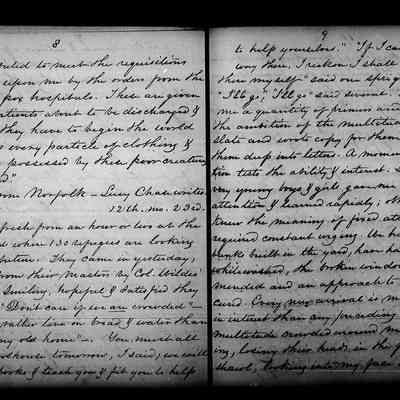 8
to meet the requisitions
upon me by the orders from the
hospitals. These are given
patients about to be discharged &
they have to begin the world
every particle of clothing &
possessed by these poor creatures
Norfolk – Lucy Chase writes
12th. mo. 23d.
fresh from an hour or two at the
where 130 refugees are looking
They came in yesterday,
from their Masters by Col. Wildes'
Smiling, hopeful & satisfied they
"Don't care if we are crowded" –
rather live on bread & water than
my old home" –. You must all
schoolhouse tomorrow, I said; we will
books & teach you & fit you to help
9
to help yourselves." "If I can
way there, I reckon I shall
there myself" said one
"I'll go," "I'll go" said several.
me a quantity of primers and
the ambition of the multitude
slate and wrote copy for them
them deep into letters. A moment
tests the ability & interest.
very young boys & girls gave me
attention & learned rapidly;
knew the meaning of fixed
required constant urging.
bunks built in the yard, have
whitewashed, the broken windows
mended and an approach to
cured. Every new arrival is
in interest than any preceding
multitude crowded around me
ing, losing their heads in the
shawl, looking into my face